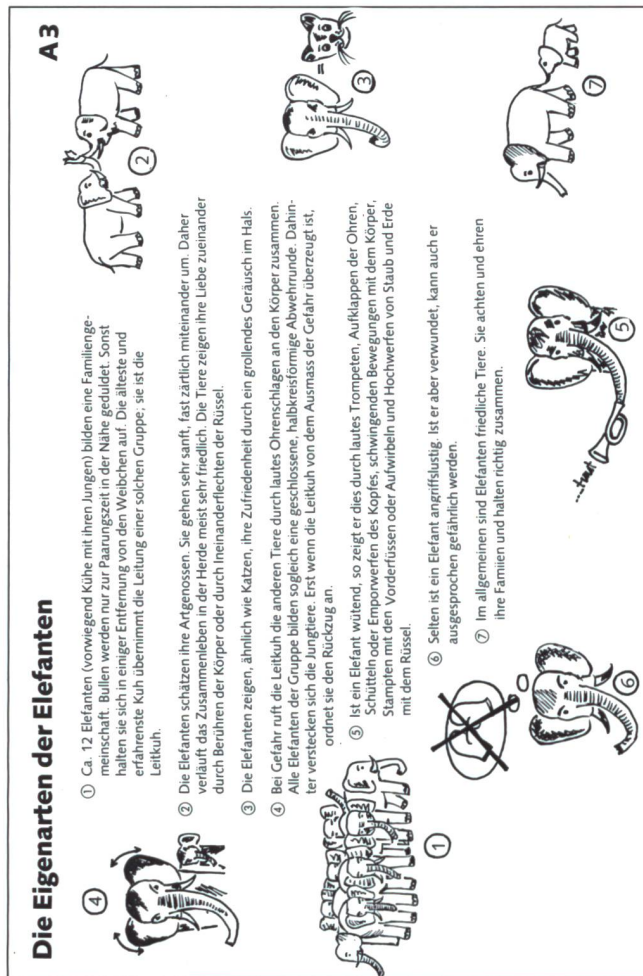 Die Eigenarten der Elefanten
A3
① Ca. 12 Elefanten (vorwiegend Kühe mit ihren Jungen) bilden eine Familienge-
meinschaft. Bullen werden nur zur Paarungszeit in der Nähe geduldet. Sonst
halten sie sich in einiger Entfernung von den Weibchen auf. Die älteste und
erfahrenste Kuh übernimmt die Leitung einer solchen Gruppe; sie ist die
Leitkuh.
② Die Elefanten schätzen ihre Artgenossen. Sie gehen sehr sanft, fast zärtlich miteinander um. Daher
verläuft das Zusammenleben in der Herde meist sehr friedlich. Die Tiere zeigen ihre Liebe zueinander
durch Berühren der Körper oder durch Ineinanderflechten der Rüssel.
③ Die Elefanten zeigen, ähnlich wie Katzen, ihre Zufriedenheit durch ein grollendes Geräusch im Hals.
④ Bei Gefahr ruft die Leitkuh die anderen Tiere durch lautes Ohrenschlagen an den Körper zusammen.
Alle Elefanten der Gruppe bilden sogleich eine geschlossene, halbkreisförmige Abwehrrunde. Dahin-
ter verstecken sich die Jungtiere. Erst wenn die Leitkuh von dem Ausmass der Gefahr überzeugt ist,
ordnet sie den Rückzug an.
⑤ Ist ein Elefant wütend, so zeigt er dies durch lautes Trompeten, Aufklappen der Ohren,
Schütteln oder Emporwerfen des Kopfes, schwingenden Bewegungen mit dem Körper,
Stampfen mit den Vorderfüssen oder Aufwirbeln und Hochwerfen von Staub und Erde
mit dem Rüssel.
⑥ Selten ist ein Elefant angriffslustig. Ist er aber verwundet, kann auch er
ausgesprochen gefährlich werden.
⑦ Im allgemeinen sind Elefanten friedliche Tiere. Sie achten und ehren
ihre Famiien und halten richtig zusammen.
④
②
=
③
①
....tuut
⑤
⑥
⑦